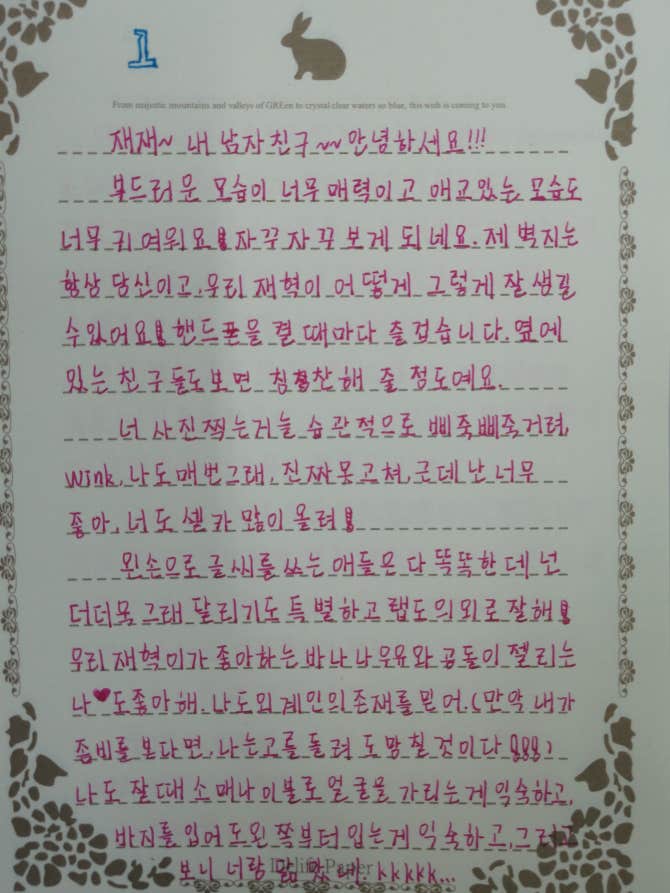 1
From majestic mountains and valleys of GREen to crystal clear waters so blue, this wish is coming to you.
재재~ 내 남자친구~~ 안녕하세요!!!
부드러운 모습이 너무 매력이고 애교있는 모습도
너무 귀여워요! 자꾸 자꾸 보게 되네요. 제 벽지는
항상 당신이고, 우리 재혁이 어떻게 그렇게 잘 생길
수있어요! 핸드폰을 켤 때마다 즐겁습니다. 옆에
있는 친구들도 보면 칭찬해 줄 정도예요.
너 사진찍는거늘 습관적으로 삐죽삐죽거려,
wink, 나도 매번그래, 진짜못고쳐, 근데 난 너무
좋아, 너도 셀카 많이 올려!
왼손으로 글씨를 쓰는 애들은 다 똑똑한데 넌
더더욱 그래 달리기도 특별하고 랩도 의외로 잘해!
우리 재혁이가 좋아하는 바나나우유와 곰돌이 젤리는
나♥도좋아해. 나도외계인의존재를 믿어.(만약 내가
좀비를 본다면, 나는고를돌려 도망칠 것이다!!!)
나도 잘때 소매나 이불로 얼굴을 가리는게 익숙하고,
바지를 입어도왼쪽부터 입는게 익숙하고, 그리고
보니 너랑 kkkkk...